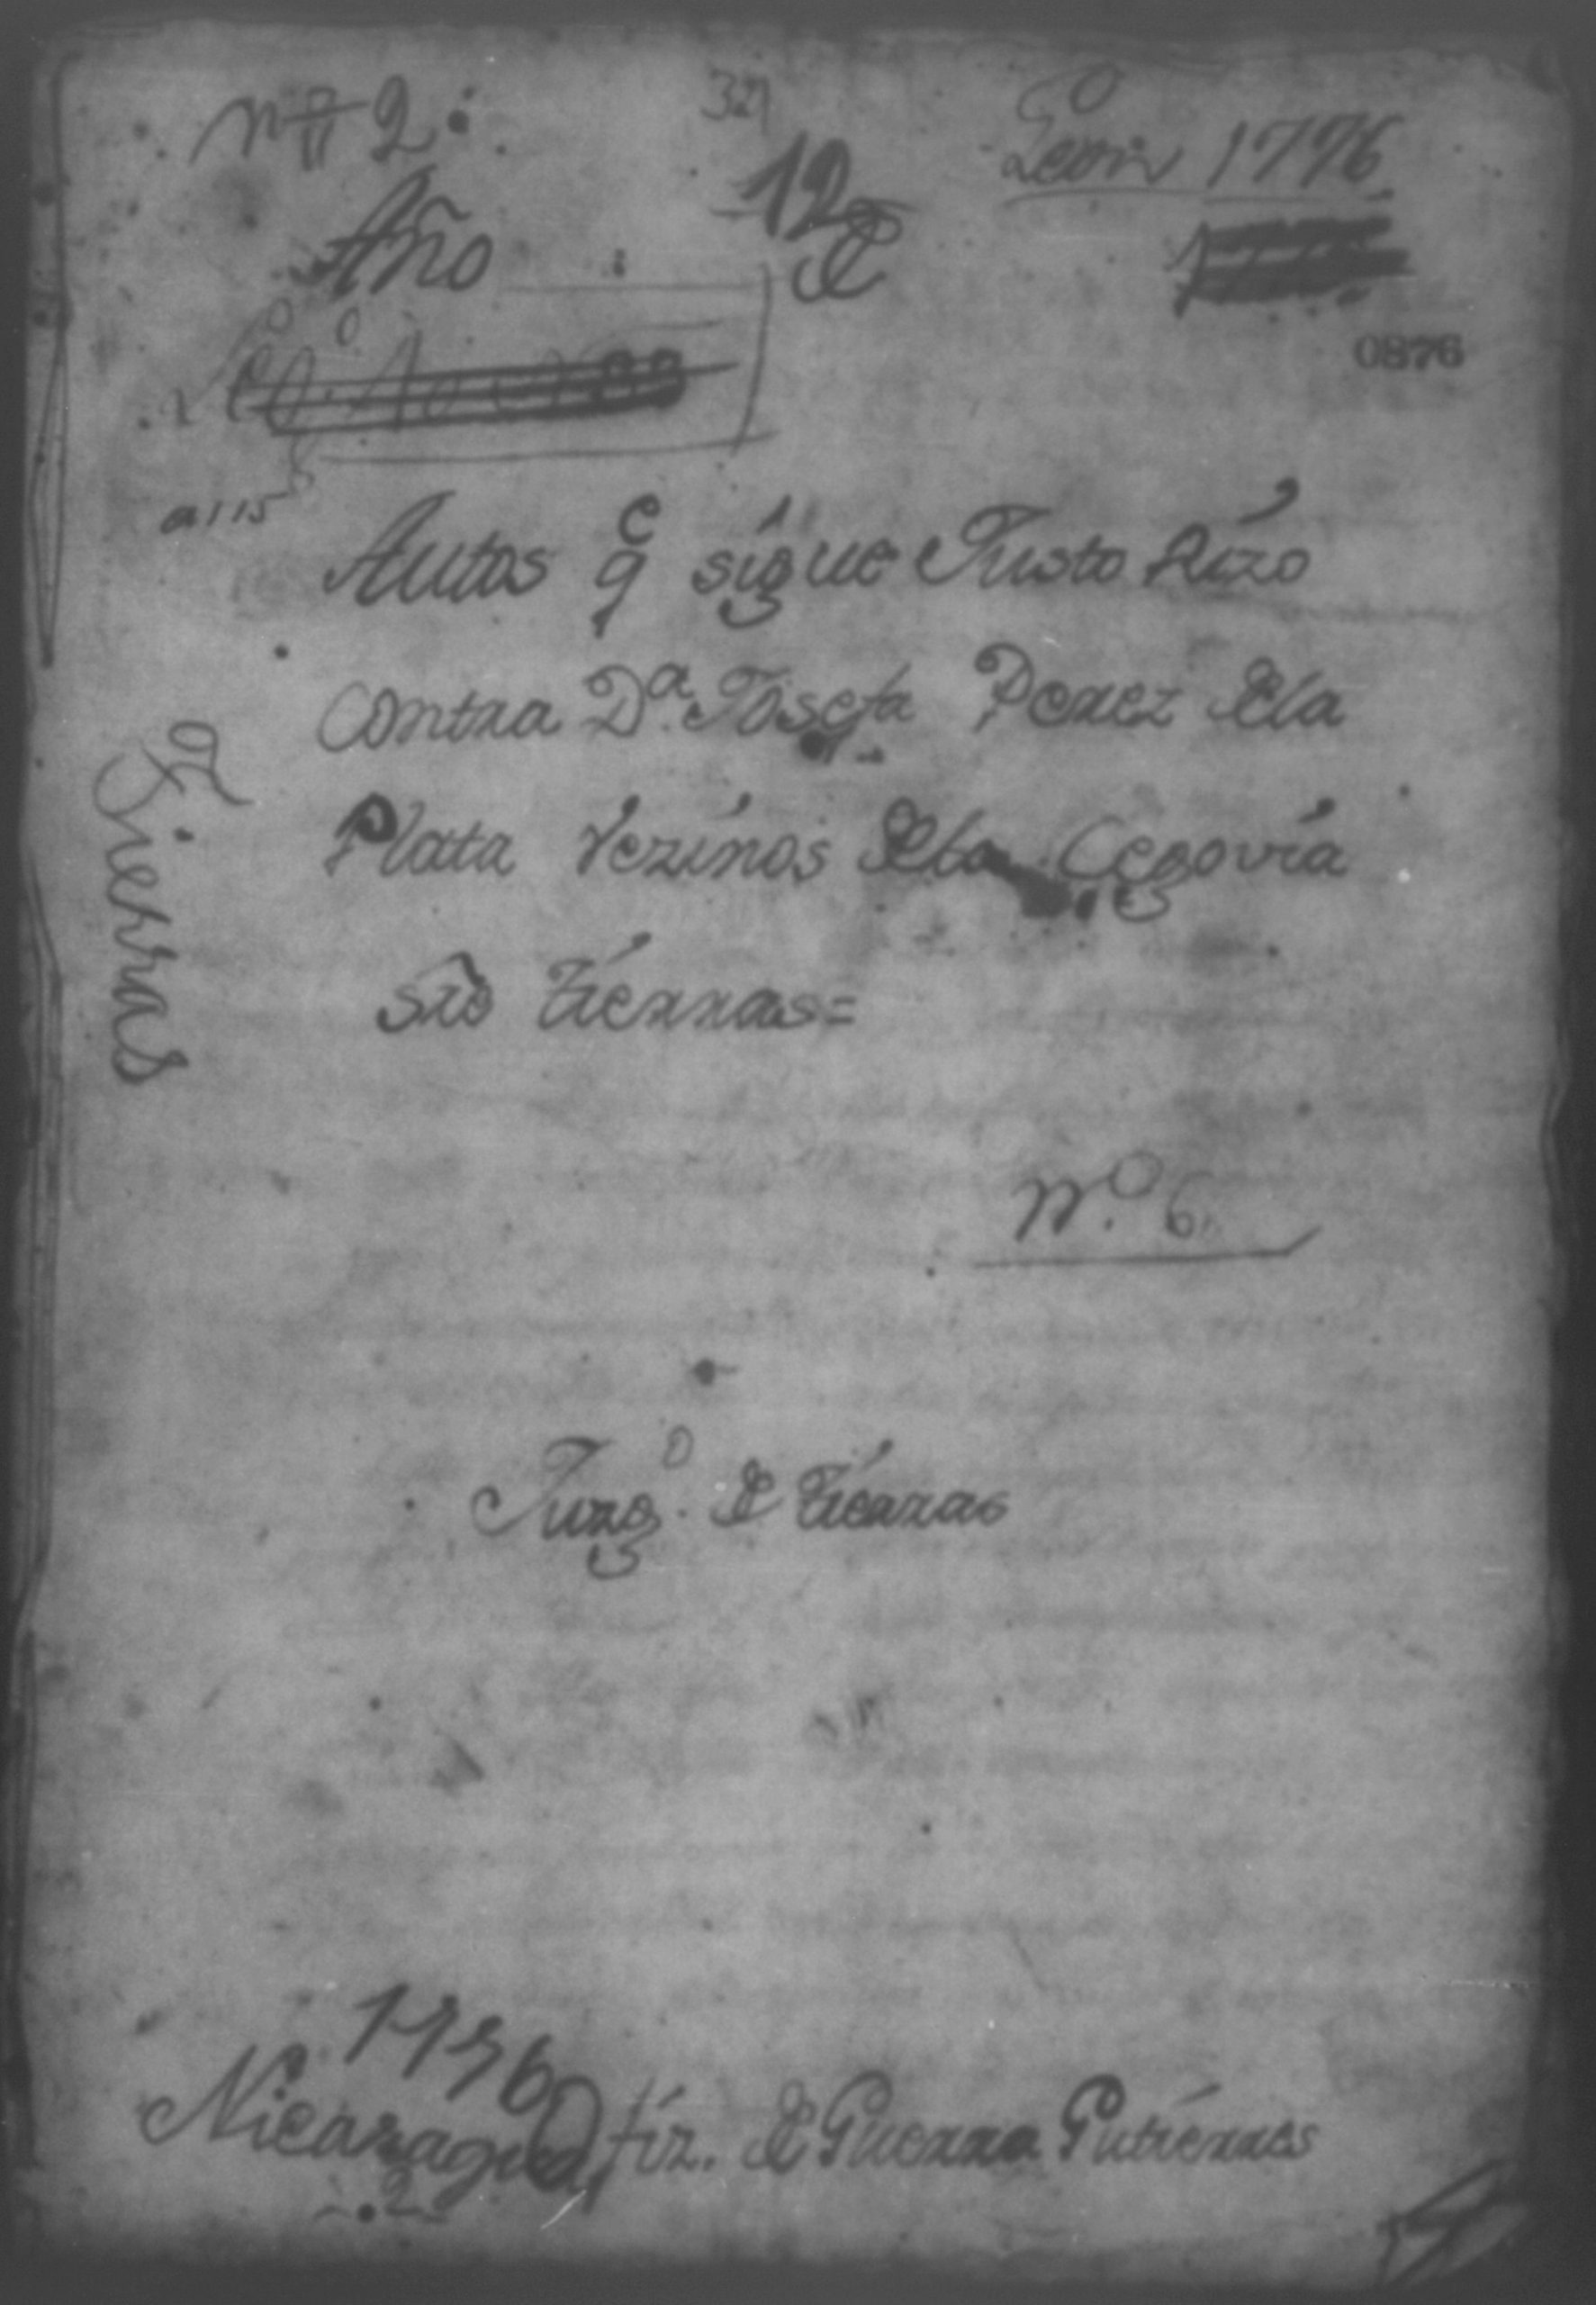 nº 2.
32
Leon 1776
12
Año de
0876
a 115
Autos q^e sigue Justo Rizo
contra D^a. Josefa Perez de la
Plata vezinos de la Cegovia
sr̃e tierras =
Tierras
N.º 6
Juzg^o. de tierras
1776
Nicaragua
2
de Guerra Gutierres